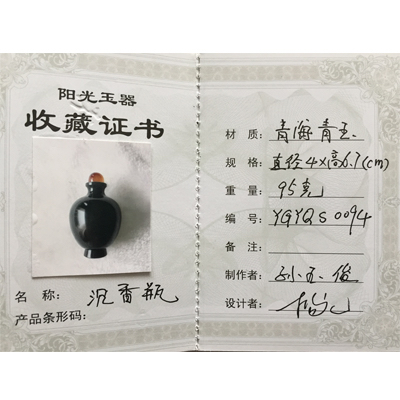 阳光玉器
收藏证书
名 称: 沉香瓶
产品条形码:
材 质: 青海青玉
规 格: 直径4×高6.7(cm)
重 量: 95克
编 号: YGYQS0094
备 注:
制作者: 孙玉俊
设计者: